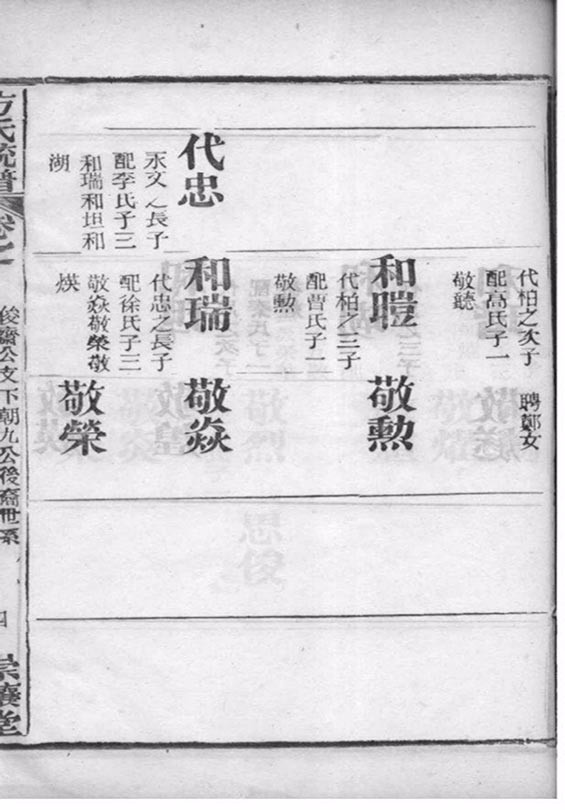 代柏之次子
配高氏子一
敬聽
聘鄭女
和暟
代柏之三子
配曹氏子一
敬勲
敬勲
代忠
永文之長子
配李氏子三
和瑞和坦和
湖
和瑞
代忠之長子
配徐氏子三
敬焱敬榮敬
煐
敬焱
敬榮
方氏統譜
卷之
俊齋公支下朝九公後裔世系
四
崇讓堂